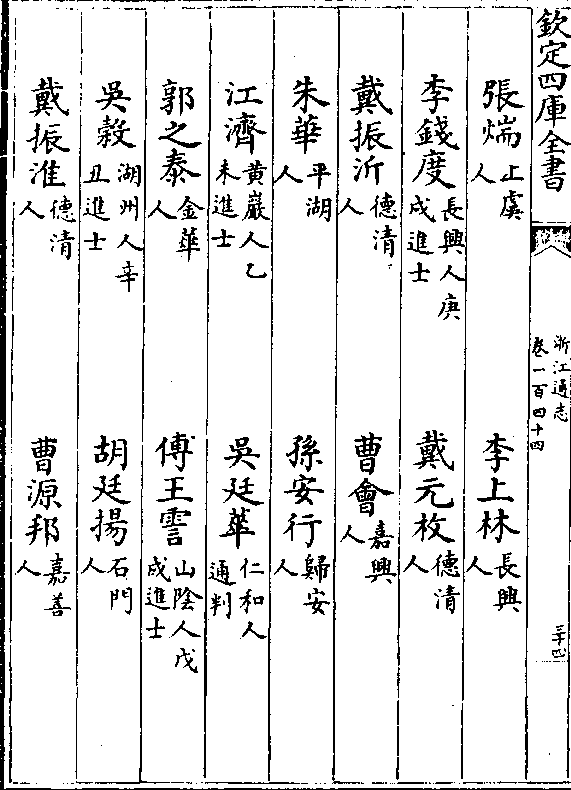 欽定四庫全書
浙江通志
卷一百四十四
三十四
張煓 上虞人
李上林 長興人
李錢度 長興人庚戌進士
戴元枚 德清人
戴振沂 德清人
曹會 嘉興人
朱華 平湖人
孫安行 歸安人
江濟 黄巖人乙未進士
吳廷華 仁和人通判
郭之泰 金華人
傅王雯 山陰人戊戌進士
吳榖 湖州人辛丑進士
胡廷揚 石門人
戴振淮 德清人
曹源邦 嘉善人